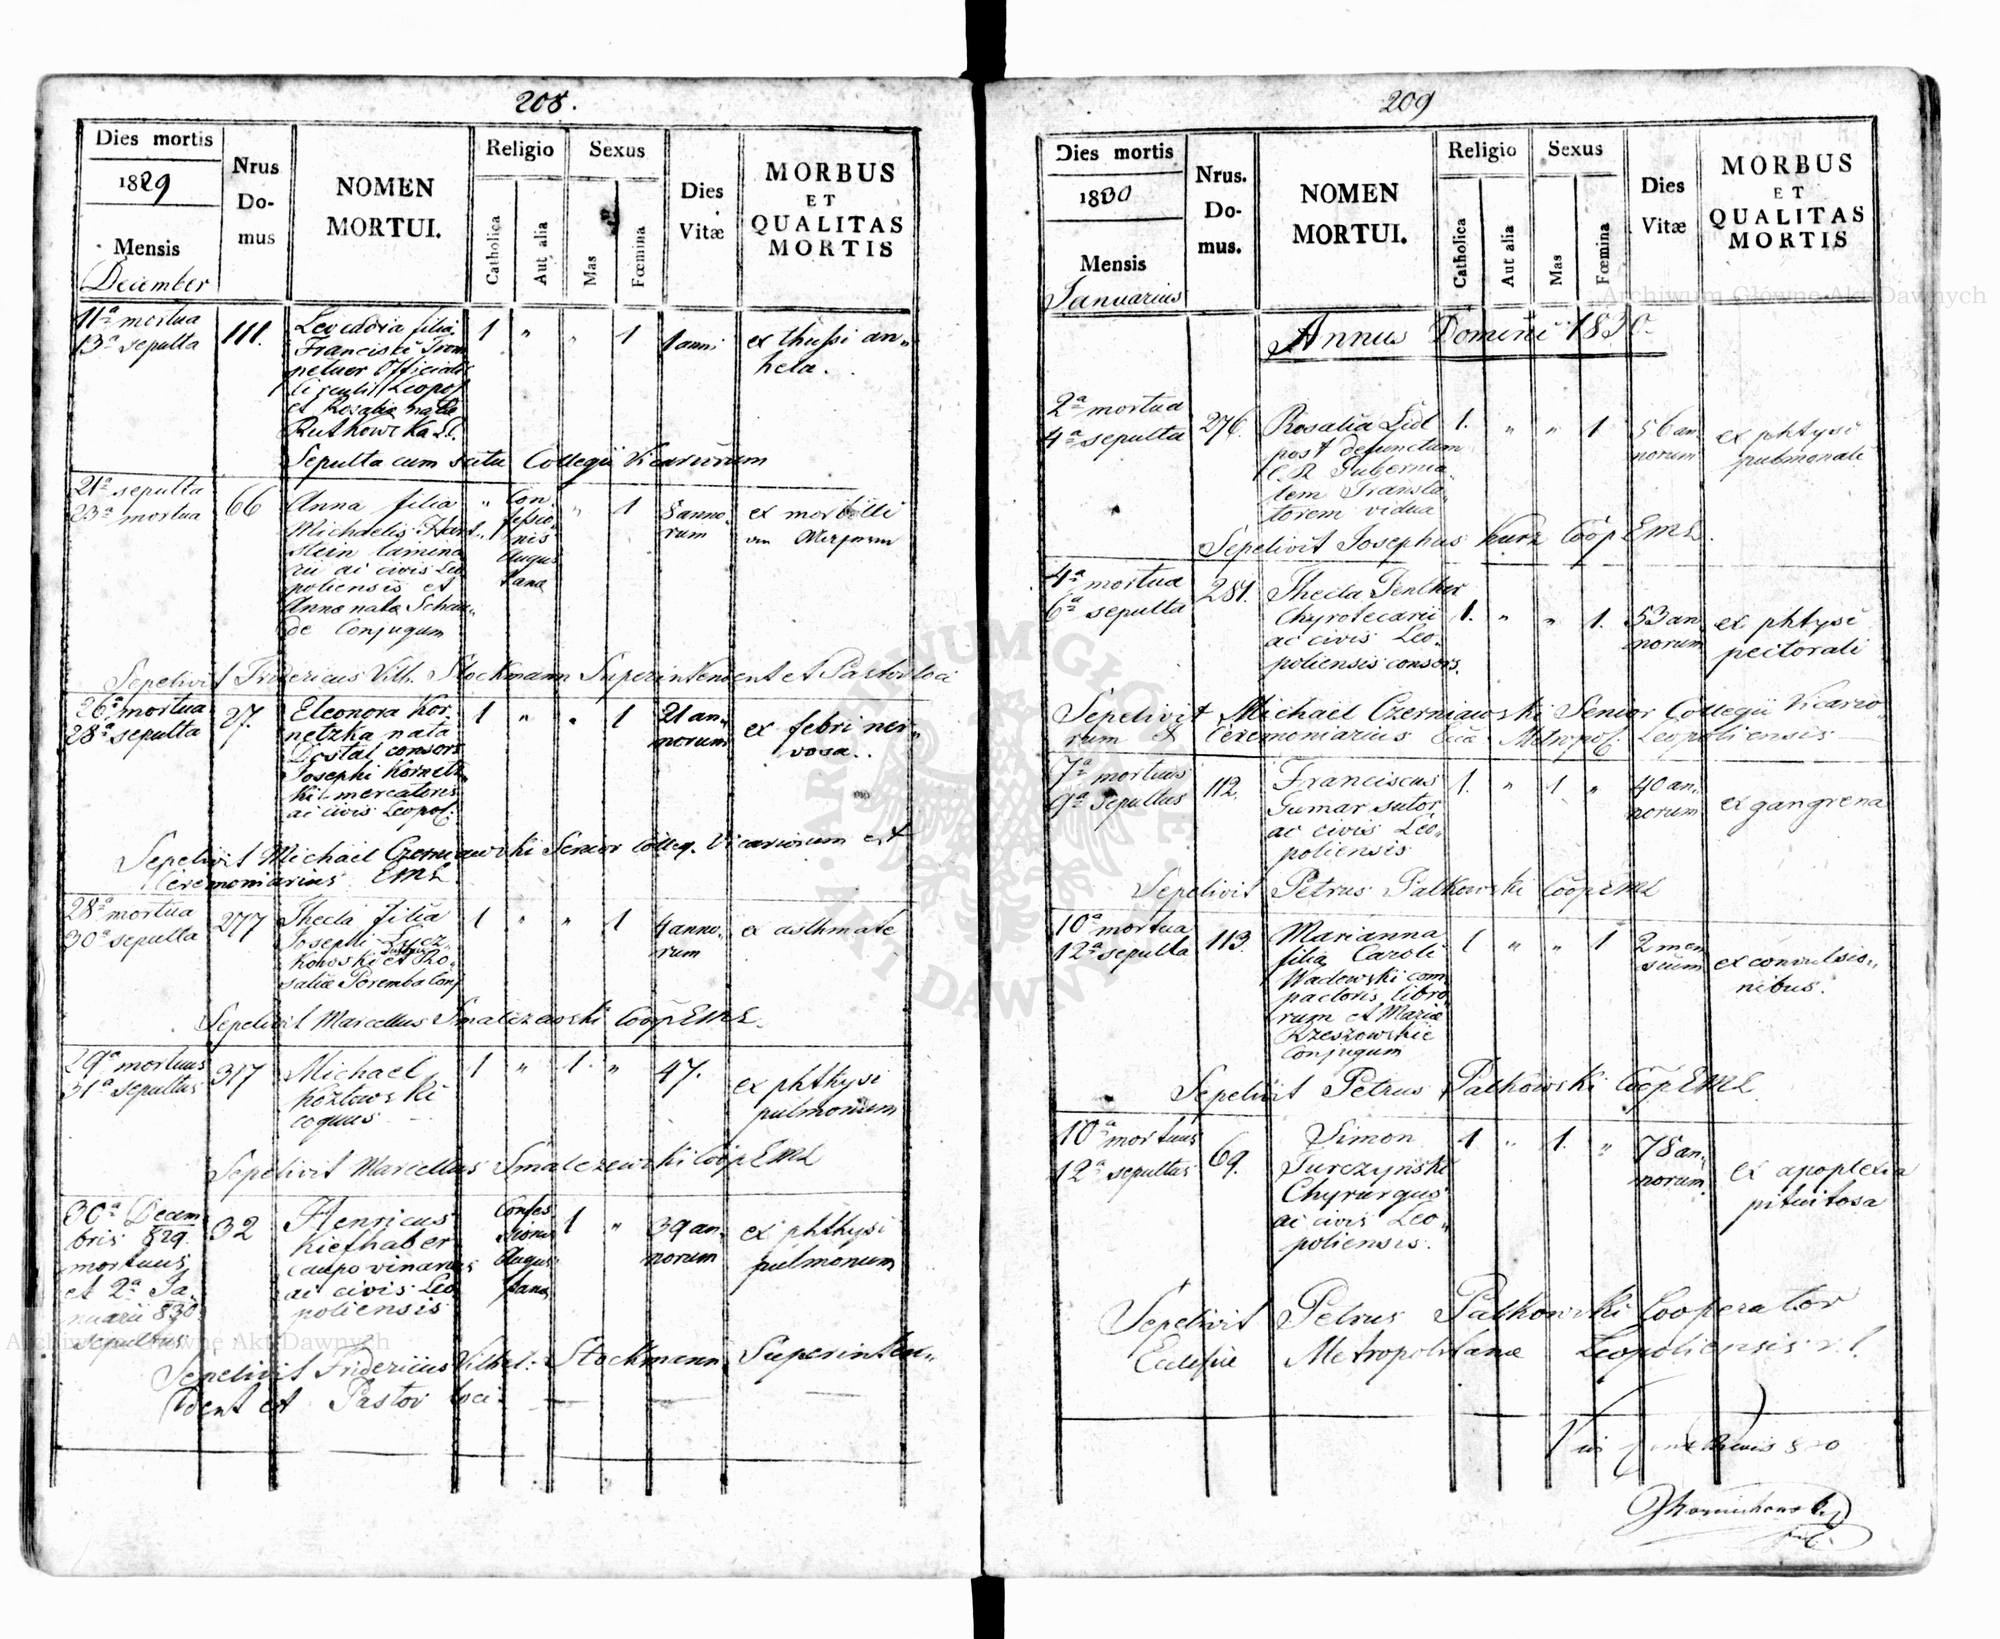 208.
Dies mortis
1829
Mensis
December
Nrus Do- mus
NOMEN MORTUI.
Religio
Catholica
Aut alia
Sexus
Mas
Fœmina
Dies Vitæ
MORBUS
ET
QUALITAS
MORTIS
11ª mortua
13ª sepulta
111.
Leocadia filia
Francisci
Officialis
Leopol
et Rosalia nata
Rutkowska
1 " " 1
1 anni
ex thussi an„
hela.
Sepulta cum scitu Collegii Vicariorum
21ª sepulta
23ª mortua
66
Anna filia
Michaelis Hart„
stein lamina
rii ac civis Leo
poliensis et
Anna nata Schau„
de Conjugum
" Con
fessio
nis
Augus
tana
" 1
8 anno„
rum
ex morbilli
Sepelivit Fridericus Vilh. Stockmann Superintendent et Pastor loci
26ª mortua
28ª sepulta
27.
Eleonora Kor„
netzka nata
Dostal consors
Josephi Kornetz
ki mercatoris
ac civis Leopol:
1 " " 1
21 an„
norum
ex febri ner„
vosa.
Sepelivit Michael Czerniawski Senior Colleg. Vicariorum et
Ceremoniarius EML
28ª mortua
30ª sepulta
277
Thecla filia
Josephi
et Ro„
saliæ Poremba Conj
1 " " 1
4 anno„
rum
ex asthmate
Sepelivit Marcellus Smalczewski Coop EML.
29ª mortuus
31ª sepultus
317
Michael
Kozłowski
coquus
1 " 1. "
47.
ex phthysi
pulmonum
Sepelivit Marcellus Smalczewski Coop EML
30ª Decem
bris 829
mortuus
et 2ª Ja„
nuarii 830
sepultus
32
Henricus
Kiefhaber
caupo vinarius
ac civis Leo
poliensis
Confes
sionis
Augus
tana
1 "
39 an„
norum
ex phthysi
pulmonum
Sepelivit Fridericus Vilhel: Stockmann Superinten„
dent et Pastor loci
209
Dies mortis
1830
Mensis
Januarius
Nrus. Do- mus.
NOMEN MORTUI.
Religio
Catholica
Aut alia
Sexus
Mas
Fœmina
Dies Vitæ
MORBUS
ET
QUALITAS
MORTIS
Annus Domini 1830.
2ª mortua
4ª sepulta
276.
Rosalia Lidl
post defunctum
C. R. Gubernia
lem Transla
torem vidua
1. " " 1
56 an„
norum
ex phtysi
pulmonali
Sepelivit Josephus Kurz Coop EML.
4ª mortua
6ª sepulta
281.
Thecla
Chyrotecarii
ac civis Leo„
poliensis consors.
1. " " 1.
53 an
norum
ex phtysi
pectorali
Sepelivit Michael Czerniawski Senior Collegii Vicario„
rum & Ceremoniarius Metropol: Leopoliensis
7ª mortuus
9ª sepultus
112.
Franciscus
Gumar sutor
ac civis Leo„
poliensis
1. " 1 "
40 an„
norum
ex gangrena
Sepelivit Petrus Patkowski Coop EML
10ª mortua
12ª sepulta
113.
Marianna
filia Caroli
Wadowski com
pactoris libro
rum et Mariæ
Rzeszowskie
Conjugum
1 " " 1
2 men
sium
ex convulsio„
nibus.
Sepelivit Petrus Patkowski Coop EML
10ª mortuus
12ª sepultus
69.
Simon
Turczynski
Chyrurgus
ac civis Leo„
poliensis.
1 " 1. "
78 an„
norum.
ex apoplexia
pituitosa
Sepelivit Petrus Patkowski Cooperator
Ecclesiæ Metropolitanæ Leopoliensis r. l.
Archiwum Główne Akt Dawnych
Archiwum Główne Akt Dawnych
ARCHIWUM GŁÓWNE
AKT DAWNYCH